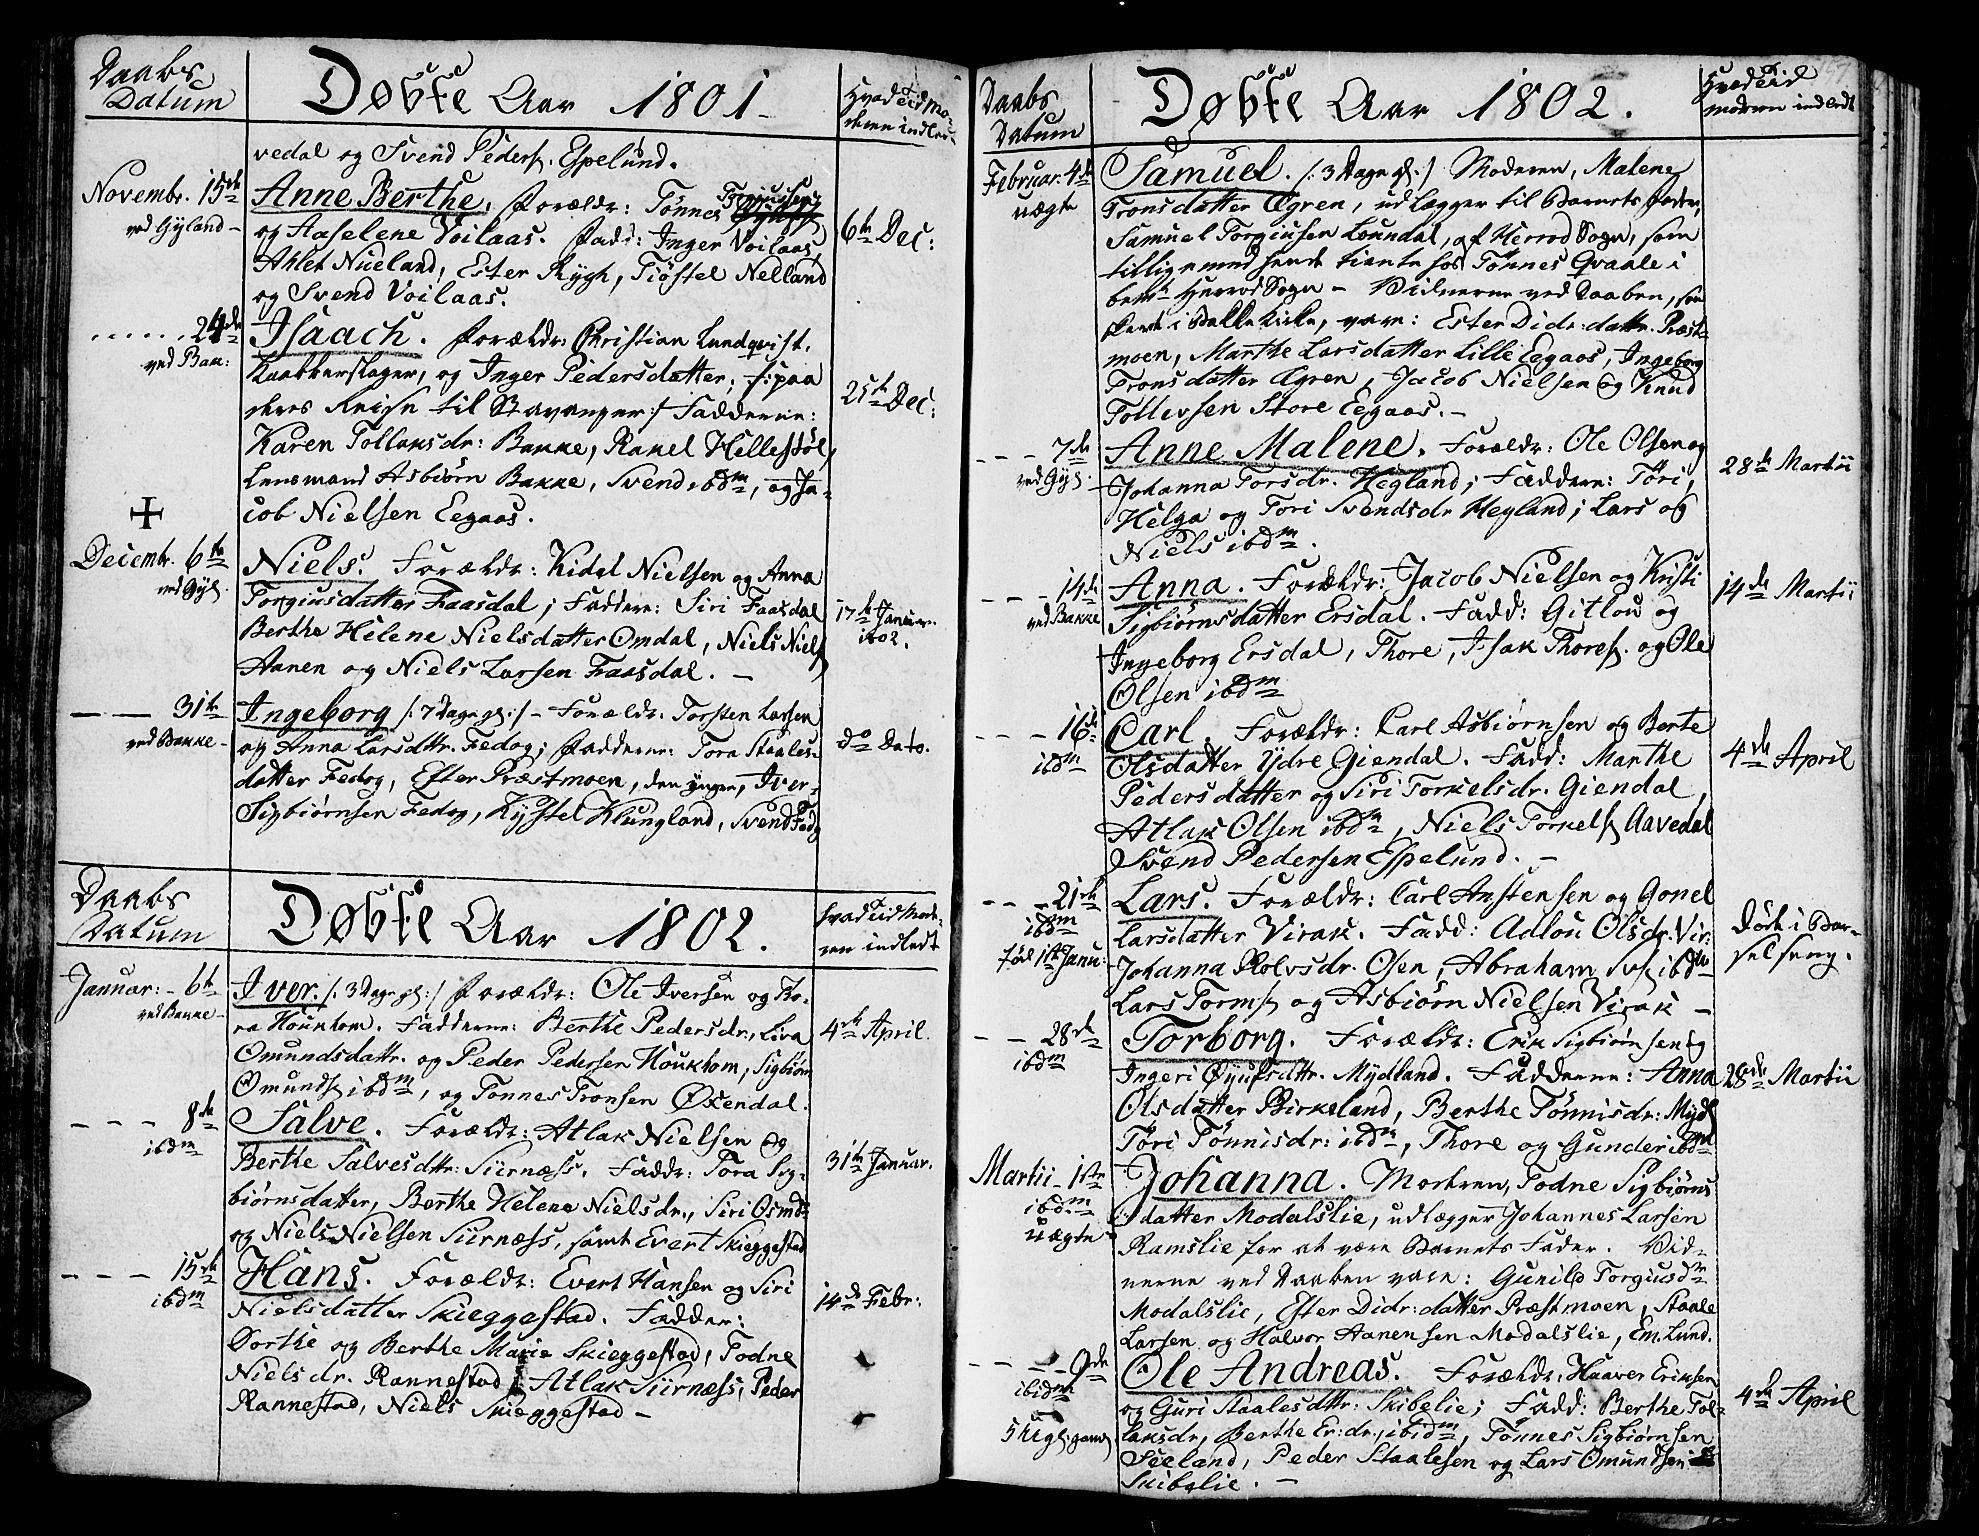 Daabs
Datum
Døbte Aar 1801.
Hvad Tid Mo-
deren indled-
vedal og Svend Peders. Espelund.
Novembr. 15de
ved Gyland -
Anne Berthe, Forældr: Tønnes Torgiusen
og Aaselene Voilaas. Fadd: Inger Voilaas,
Ahlet Nueland, Ester Rygh, Tiøstel Nelland
og Svend Voilaas.
6te Dec:
24de
ved Bak:
Isaach. Forældr: Christian Lundqvist,
Kaabberslager, og Inger Pedersdatter, /: paa
deres Reise til Stavanger :/ Fadderne:
Karen Tollaksdr: Bakke, Rakel Hillestøl,
Lensmand Asbiørn Bakke, Svend ibdm, og Ja-
cob Nielsen Eegaas.
25te Dec:
Decembr. 6te
ved Gyl.
Niels. Forældr: Kidel Nielsen og Anna
Torgiusdatter Faasdal; Faddere: Siri Faasdal
Berthe Helene Nielsdatter Omdal, Niels Niels
Aanen og Niels Larsen Faasdal. -
17de Januar.
1802.
31te
ved Bakke -
Ingeborg /: 7 Dage gl :/ - Forældr: Torsten Larsen
og Anna Larsdttr. Fedog; Fadderne: Tora Staales-
datter Fedog, Ester Præstmoen, den yngre, Iver
Sigbiørnsen Fedog, Kystel Klungland, Svend Fedog
do Dato.
Daabs
Datum
Døbte Aar 1802.
Hvad Tid Mode-
ren indledt
Januar: - 6te
ved Bakke -
Iver. /: 3 Dage gl :/ Forældr: Ole Iversen og To-
ra Houkhom. Fadderne: Berthe Pedersdr., Liva
Omundsdattr. og Peder Pedersen Houkhom, Sigbiørn
Omunds. ibdm, og Tønnes Tronsen Øxendal.
4de April.
8de
ibdm
Salve. Forældr: Atlak Nielsen og
Berthe Salvesdttr: Siirnæss. Faddr: Tora Sig-
biørnsdatter, Berthe Helene Nielsdr., Siri Osmds
og Niels Nielsen Siirnæss, samt Evert Skieggestad
31te Januar.
15de
ibdm
Hans. Forældr: Evert Hansen og Siri
Nielsdatter Skieggestad. Fadder:
Dorthe og Berthe Marie Skieggestad, Todne
Nielsdr. Rannestad, Atlak Siirnæss, Peder
Rannestad, Niels Skieggestad -
14de Febr:
Daabs
Datum
Døbte Aar 1802.
Hvad Tid
moderen indledt
Februar. 4de
uægte
Samuel. /: 3 Dage gl :/ Moderen, Malene
Tronsdatter Øgren, udlægger til Barnets Fader,
Samuel Torgiusen Loundal, af Herrod Sogn, som
tilligemed hende tiente hos Tønnes Qvaale i
bemte Herrod Sogn - Vidnerne ved Daaben, som
skeede i Bakke Kirke, vare: Ester Didr: dattr. Præst-
moen, Marthe Larsdatter Lille Eegaas, Ingeborg
Tronsdatter Øgren, Jacob Nielsen og Knud
Tollevsen Store Eegaas. -
7de
ved Gyl.
Anne Malene. Forældr: Ole Olsen og
Johanna Torsdr. Hegland; Faddere: Tori,
Helga og Tori Svendsdr Hegland; Lars og
Niels ibdm.
28de Martii
14de
ved Bakke
Anna. Forældr: Jacob Nielsen og Kristi
Sigbiørnsdatter Ersdal. Fadd: Gitlou og
Ingeborg Ersdal, Thore, Isak Thores. og Ole
Olsen ibdm
14de Martii
16de
ibdm
Carl. Forældr: Carl Asbiørnsen og Berte
Olsdatter Ydre Giendal. Fadd: Marthe
Pedersdatter og Siri Torkelsdr. Giendal,
Atlak Olsen ibdm, Niels Torkels. Aavedal
Svend Pedersen Espelund. -
4de April
21de
ibdm
fød 1ste Janu:
Lars. Forældr: Carl Anstensen og Gonel
Larsdatter Virak. Fadd: Adlou Olsdr. Vir:
Johanna Rolvsdr. Osen, Abraham Svs. ibdm
Lars Torms. og Asbiørn Nielsen Virak -
Døde i Bar-
selseng.
28de
ibdm
Torborg. Forældr: Erik Sigbiørnsen og
Ingeri Øyufsdttr. Mydland. Fadderne: Anna
Olsdatter Birkeland, Berthe Tønnisdr: Mydl
Tori Tønnisdr: ibdm, Thore og Gunder ibdm
28de Martii
Martii - 1ste
ibdm
uægte
Johanna. Moderen, Todne Sigbiørns
datter Modalslie, udlægger Johannes Larsen
Ramslie for at være Barnets Fader. Vid-
nerne ved Daaben vare: Gunild Torgiusdm
Modalslie, Ester Didr: datter Præstmoen, Staale
Larsen og Halvor Aanensen Modalslie, Em. Lund.
9de
ibidm
Ole Andreas. Forældr: Haaver Eriksen
og Guri Staalesdttr: Skibelie; Fadd: Berthe Tol-
laksdr, Berthe Er: dr., ibidm, Tønnes Sigbiørnsen
Seeland, Peder Staalesen og Lars Omundsen
Skibelie. -
4de April